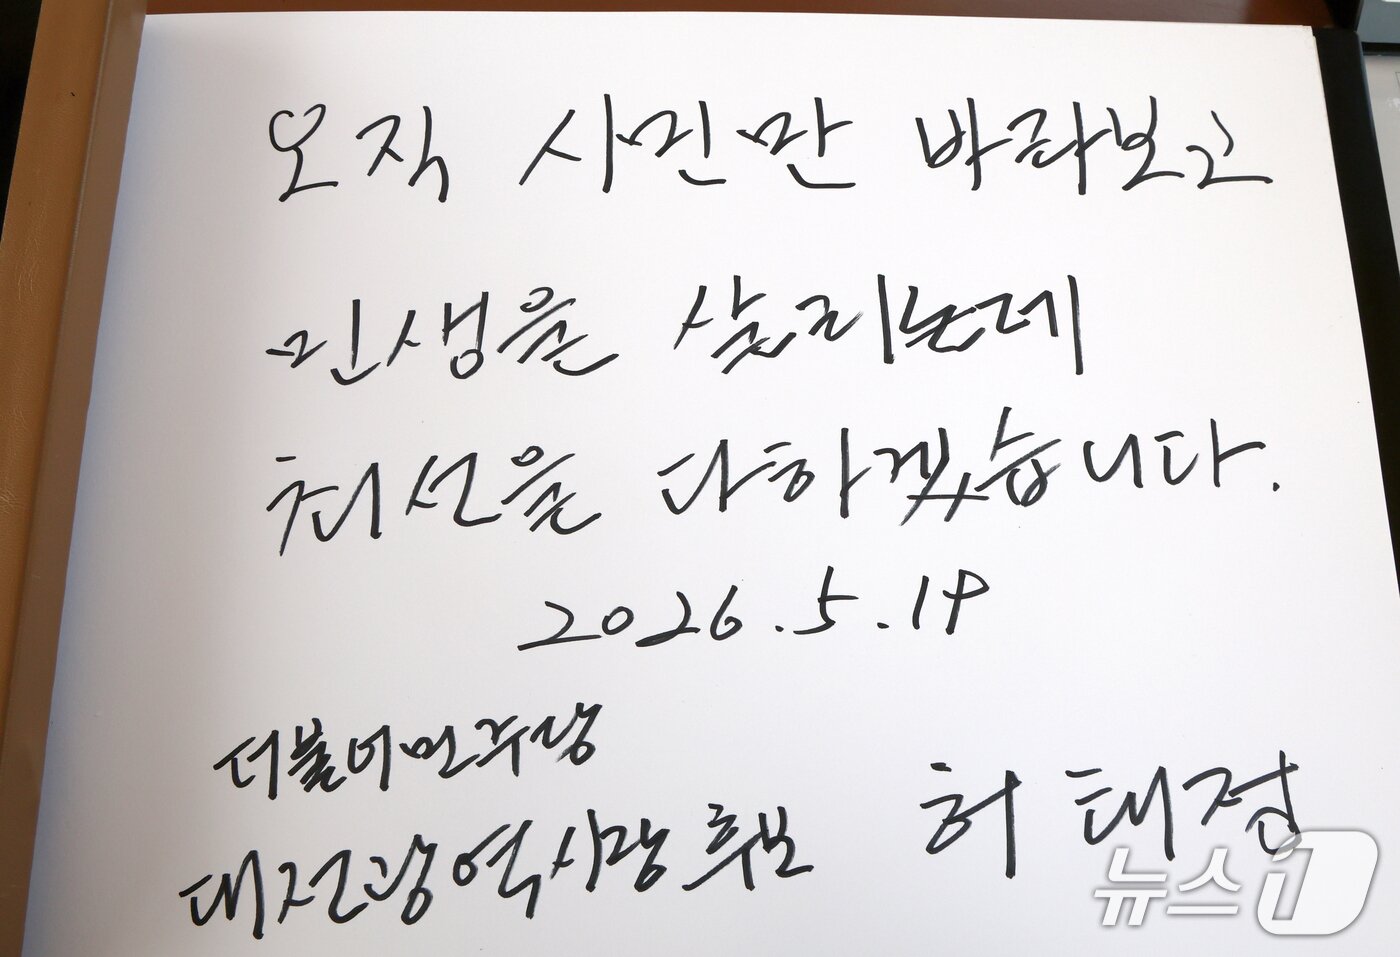 오직 시민만 바라보고
민생을 살리는데
최선을 다하겠습니다.
2026.5.19
더불어민주당
대전광역시장 후보 허태정
뉴스1